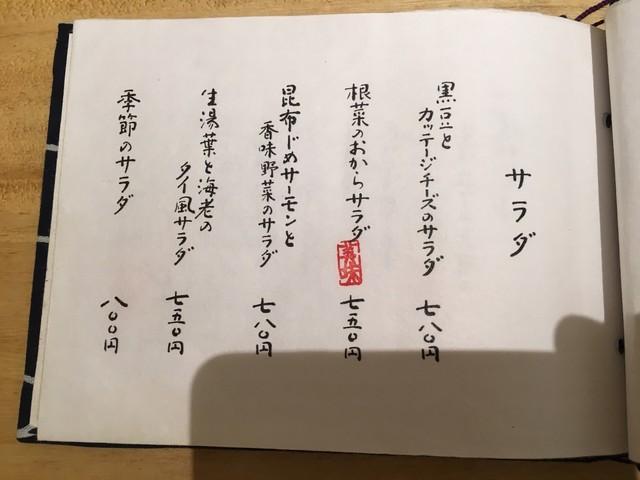 サラダ
黒豆と
カッテージチーズのサラダ
七八〇円
根菜のおからサラダ
美味
七五〇円
昆布じめサーモンと
香味野菜のサラダ
七八〇円
生湯葉と海老の
タイ風サラダ
七五〇円
季節のサラダ
八〇〇円